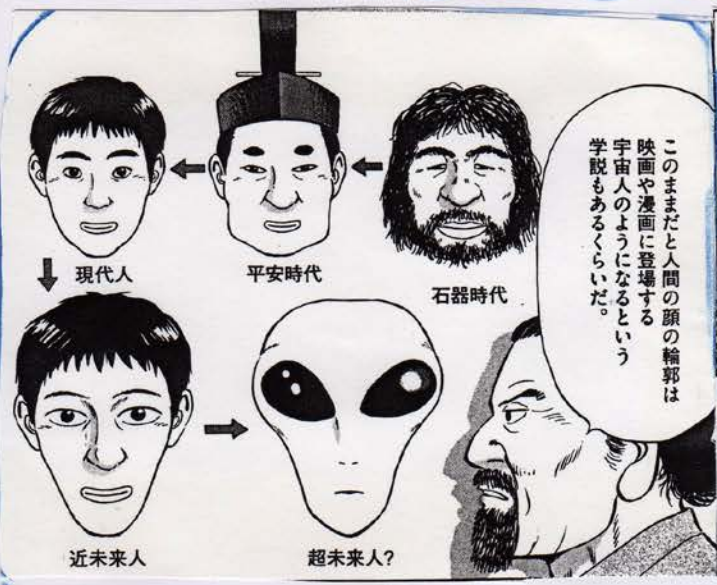 このままだと人間の顔の輪郭は
映画や漫画に登場する
宇宙人のようになるという
学説もあるくらいだ。
石器時代
平安時代
現代人
近未来人
超未来人?